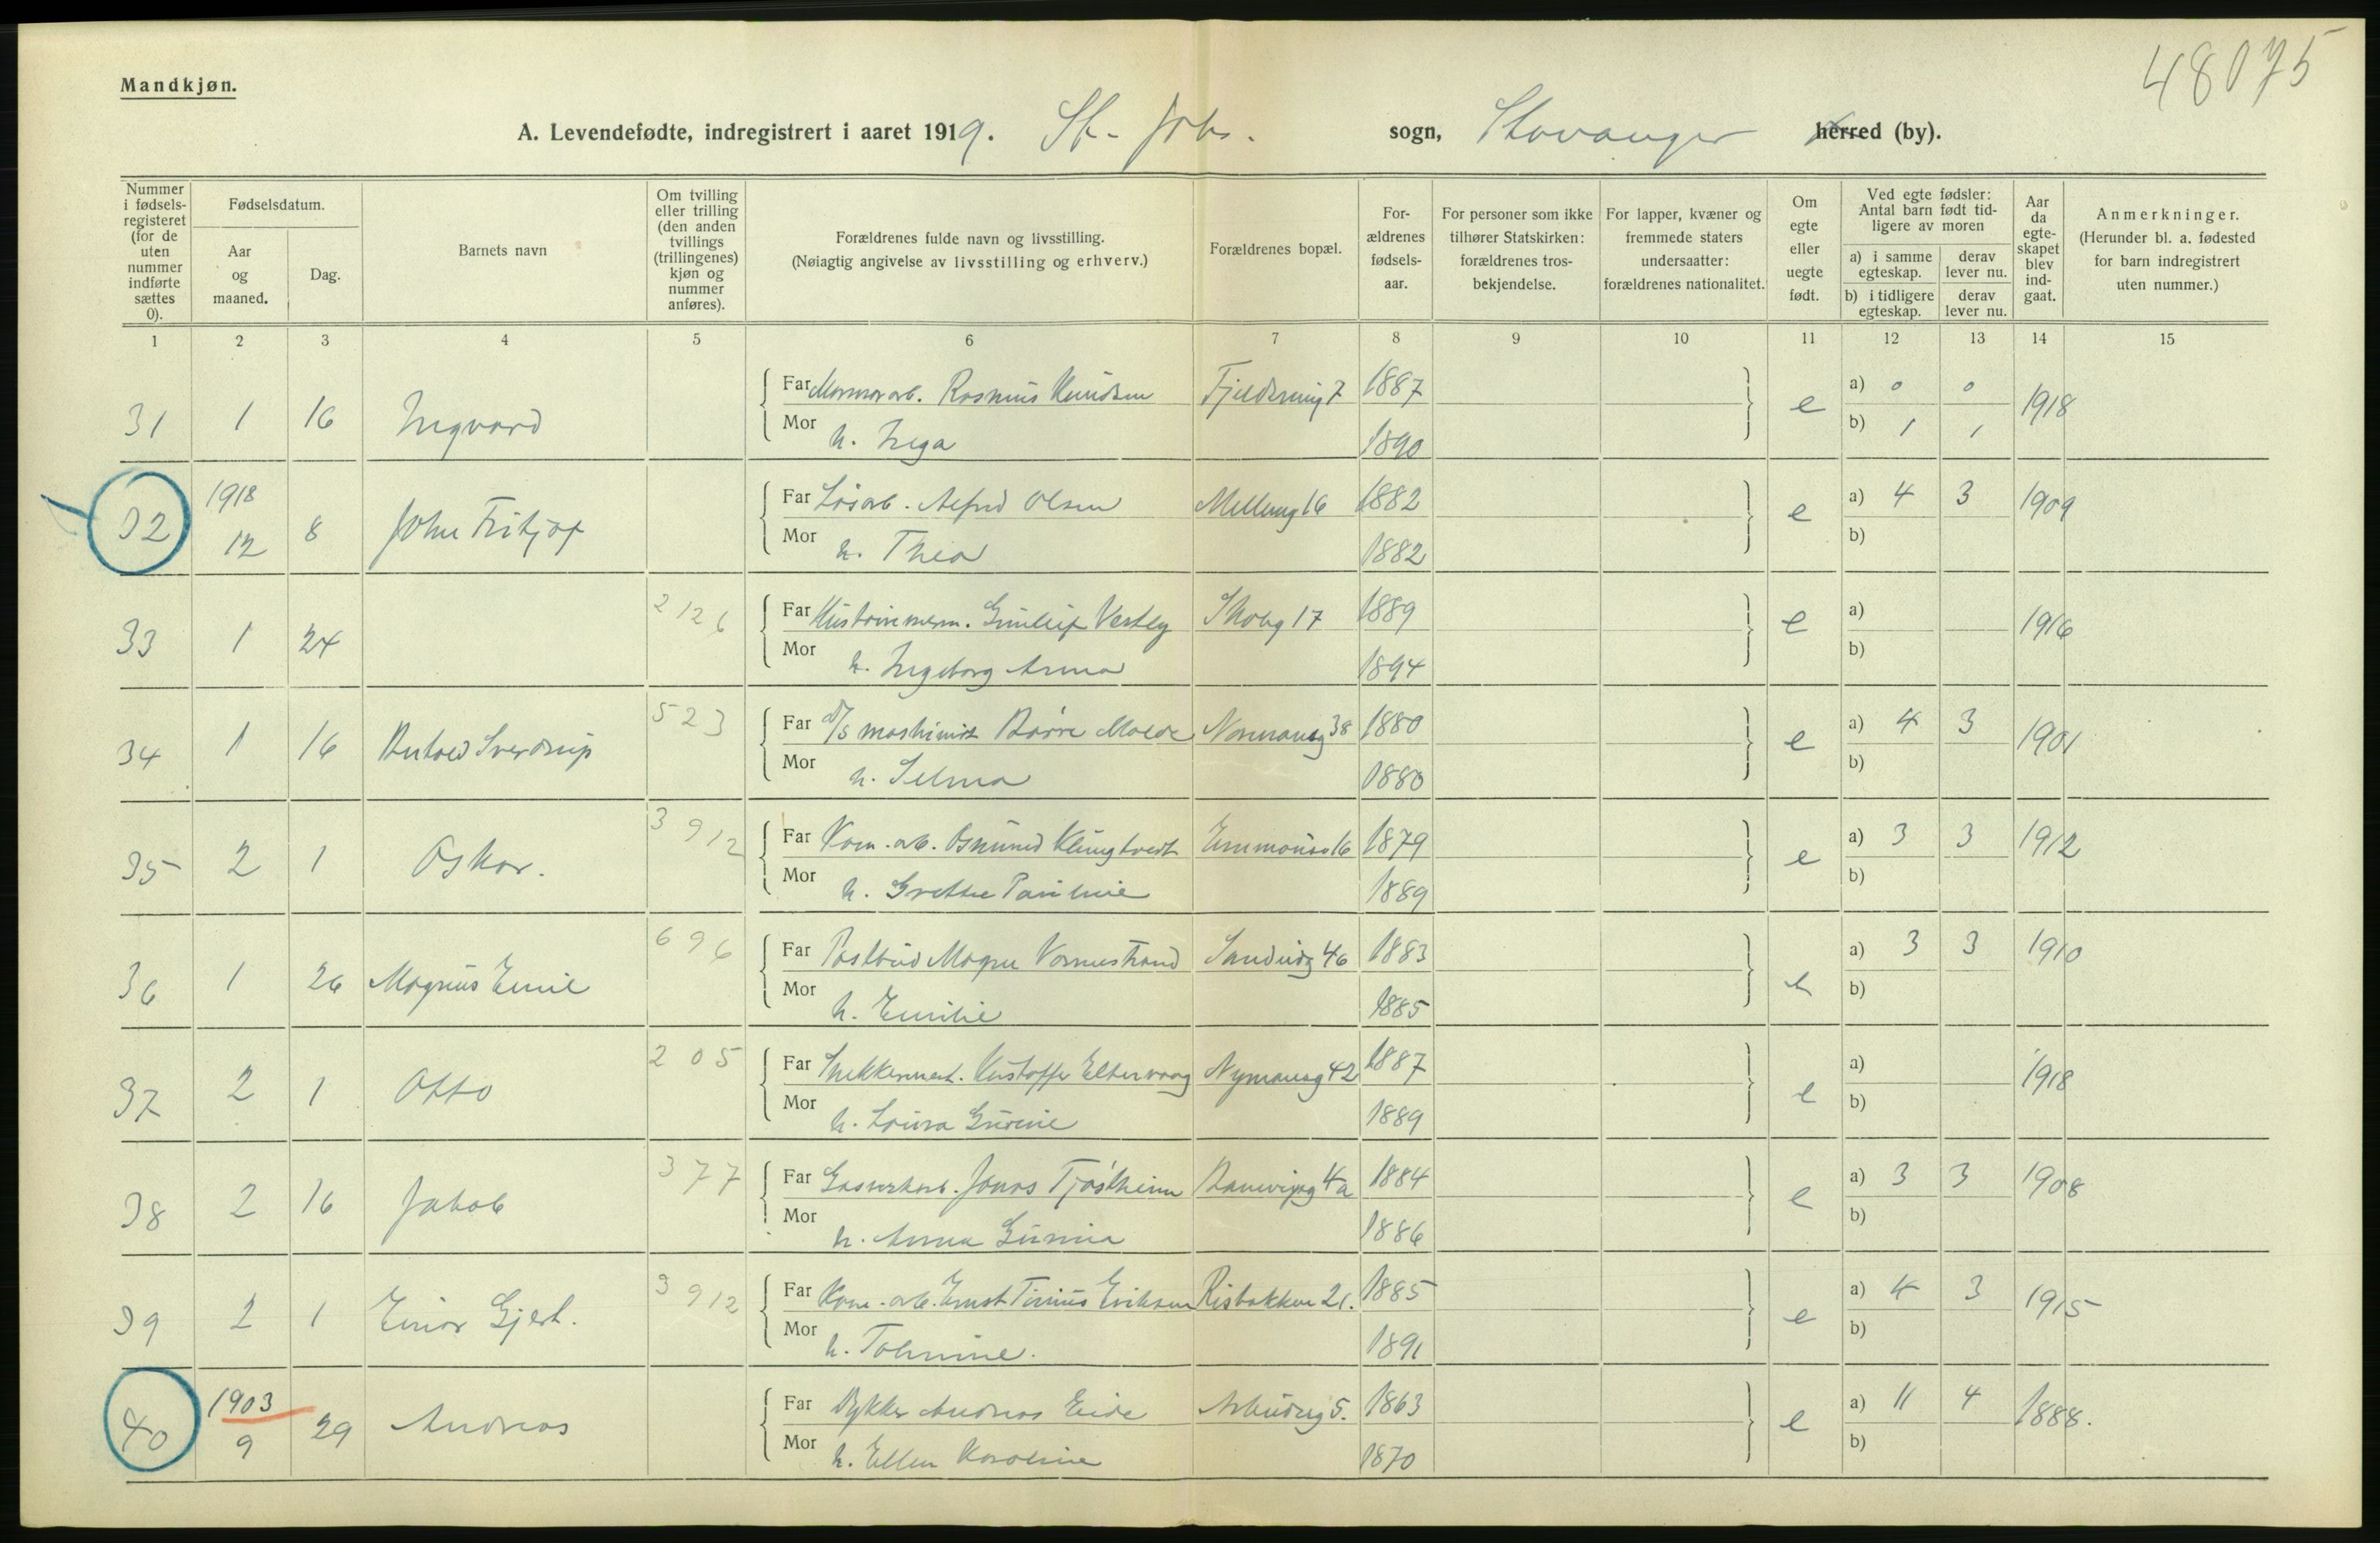 48075
Mandkjøn.
A. Levendefødte, indregistrert i aaret 1919. St. Johs. sogn, Stavanger herred (by).
Nummer i fødselsregisteret (for de uten nummer indførte sættes 0).
Fødselsdatum.
Aar og maaned.
Dag.
Barnets navn
Om tvilling eller trilling (den anden tvillings (trillingenes) kjøn og nummer anføres).
Forældrenes fulde navn og livsstilling.
(Nøiagtig angivelse av livsstilling og erhverv.)
Forældrenes bopæl.
Forældrenes fødselsaar.
For personer som ikke tilhører Statskirken: forældrenes trosbekjendelse.
For lapper, kvæner og fremmede staters undersaatter: forældrenes nationalitet.
Om egte eller uegte født.
Ved egte fødsler: Antal barn født tidligere av moren
a) i samme egteskap.
derav lever nu.
b) i tidligere egteskap.
derav lever nu.
Aar da egteskapet blev indgaat.
Anmerkninger.
(Herunder bl. a. fødested for barn indregistrert uten nummer.)
1 2 3 4 5 6 7 8 9 10 11 12 13 14 15
31 1 16 Ingvard Far Marmorarb. Rasmus Knudsen 1887 e a) 0 0 1918
Mor h. Inga 1890 b) 1 1
32 1918 12 8 John Fritjof Far Løsarb. Alfred Olsen Mellemg 16 1882 e a) 4 3 1909
Mor h. Thea 1882 b)
33 1 24 2126 Far Gunleif Vestly Skolg 17 1889 e a) 1916
Mor h. Ingeborg Anna 1894 b)
34 1 16 Sverdrup 523 Far d/s maskinist Børre Molde Normansg 38 1880 e a) 4 3 1901
Mor h. Selma 1880 b)
35 2 1 Oskar. 3912 Far Kom. arb. 16 1879 e a) 3 3 1912
Mor h. Grethe Pauline 1889 b)
36 1 26 Magnus Emil 696 Far Postbud 46 1883 a) 3 3 1910
Mor h. Emilie 1885 b)
37 2 1 Otto 205 Far Snekkermest. Kristoffer Eltervaag Nymansg 42 1887 e a) 1918
Mor h. Laura Gurine 1889 b)
38 2 16 Jakob 377 Far Gasverkarb. Jonas Tjøstheim Banevigsg 4a 1884 e a) 3 3 1908
Mor h. Anna 1886 b)
39 2 1 Einar Gjert. 3912 Far Kom. arb. Ernst Eriksen Risbakken 21. 1885 e a) 4 3 1915
Mor h. Tomine. 1891 b)
40 1903 9 29 Andreas Far Dykker Andreas Eide 5. 1863 e a) 11 4 1888.
Mor h. Ellen Karoline 1870 b)